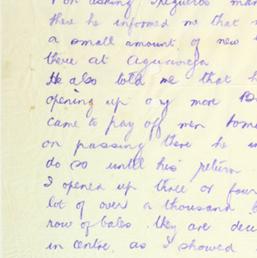 asking Negueros man
there he informed me that
a small amount of new
there at
He also told me that h
opening up any more
came to pay off men
on passing there he in
do so until his return
I opened up three or four
lot of over a thousand b
row of bales. they are deci
in centre, as I showed